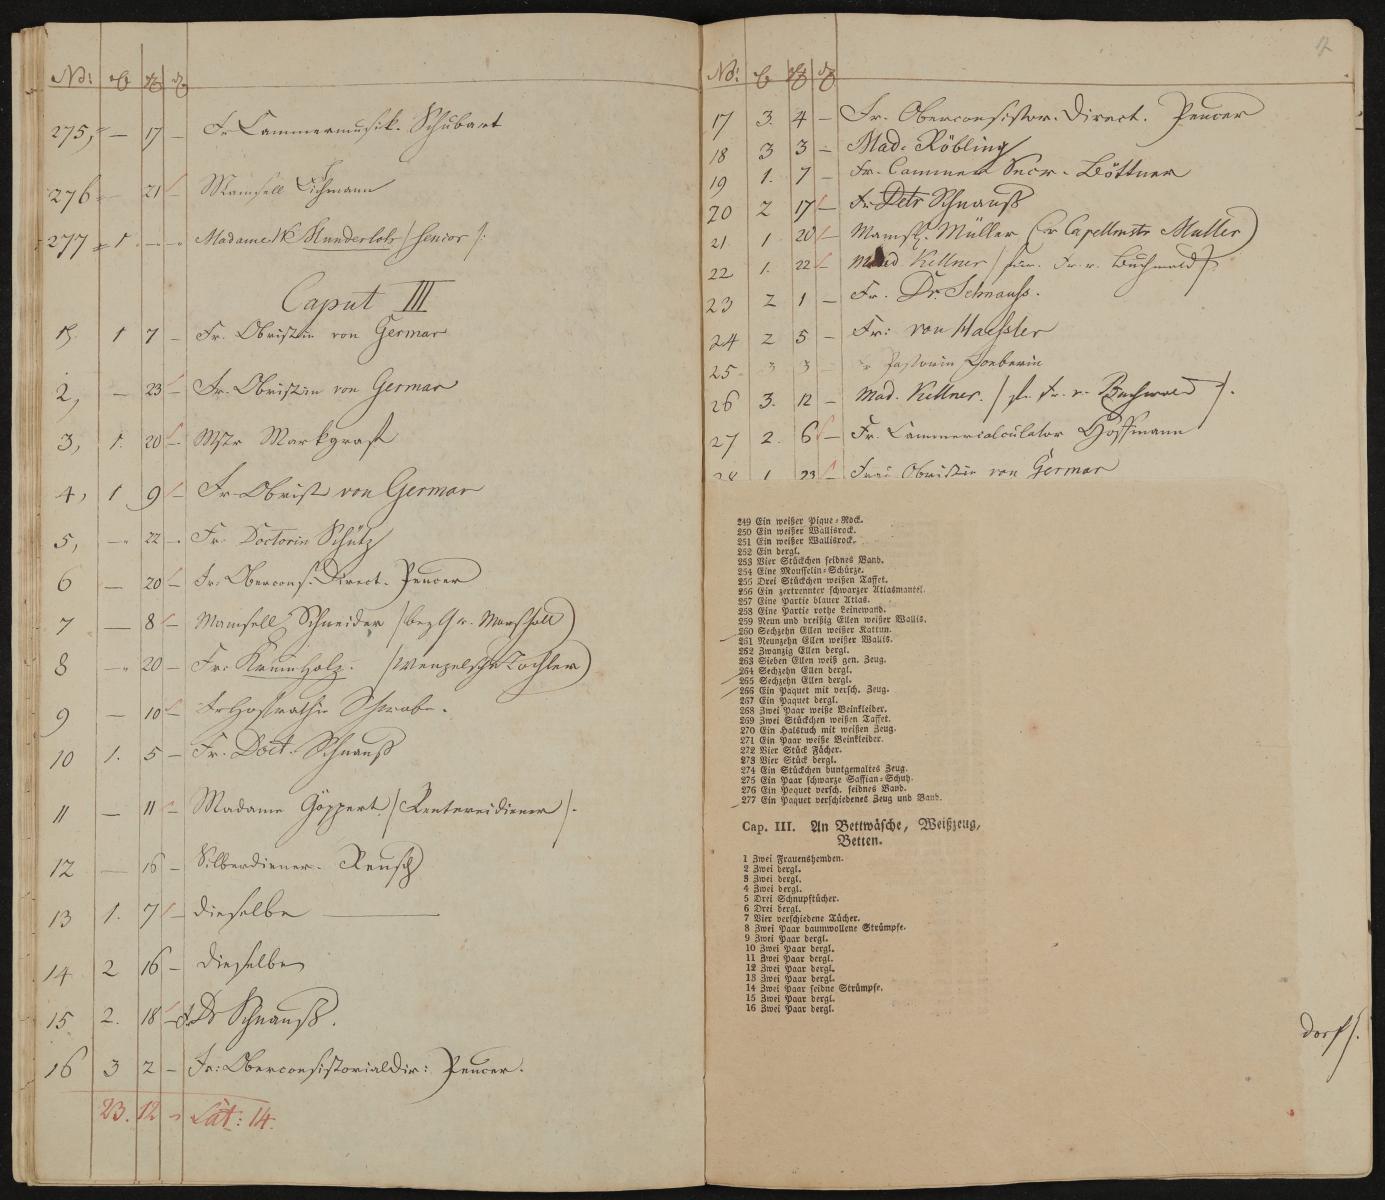 No: rh gr d
275, — 17 — Fr Cammermusik. Schubart
276 — 21 — Mamsell Eichmann
277 1 — — Madame Munderloh / senior /:
Caput III
1, 1 7 — Fr. Obristin von Germar
2, — 23 — Fr. Obristin von Germar
3, 1. 20 — Mstr Markgraf
4, 1 9 — Fr Obrist von Germar
5, — 22 — Fr. Doctorin Schütz
6 — 20 — Fr. Obercons. Direct. Peucer
7 — 8 — Mamsell Schneider / bey H v. Marschall)
8 — 20 — Fr. Krumholz. / Wenzelsche Tochter)
9 — 10 — Fr Hofräthin Schwabe.
10 1. 5 — Fr. Doct. Schnauß
11 — 11 — Madame Göppert / Rentereidiener /.
12 — 16 — Silberdiener. Reusch
13 1. 7 — dieselbe
14 2 16 — dieselbe
15 2. 18 — Fr Dr Schnauß.
16 3 2 — Fr: Oberconsistorialdir: Peucer.
23. 12 — Lat: 14.
No:
17 3. 4 — Fr. Oberconsistor. Direct. Peucer
18 3 3 — Mad. Röbling
19 1. 7 — Fr. Cammer Secr. Böttner
20 2 17 — Fr Schnauß
21 1 20 — Mamsl. Müller (Capellmstr Müller)
22 1. 22 — Mad Kellner / Fr. v. Buchwald /.
23 2 1 — Fr. Dr. Schnauß.
24 2 5 — Fr: von Haeßler
25 3 3 — Fr Pastorin Loeberin
26 3. 12 — Mad. Kellner. / Fr. v. Buchwald /.
27 2. 6 — Fr. Cammercalculator Hoffmann
28 1 23 — Frau Obristin von Germar
249 Ein weißer Pique-Rock.
250 Ein weißer Wallisrock.
251 Ein weißer Wallisrock.
252 Ein dergl.
253 Vier Stückchen seidnes Band.
254 Eine Mousselin-Schürze.
255 Drei Stückchen weißen Taffet.
256 Ein zertrennter schwarzer Atlasmantel.
257 Eine Partie blauer Atlas.
258 Eine Partie rothe Leinewand.
259 Neun und dreißig Ellen weißer Wallis.
260 Sechzehn Ellen weißer Kattun.
261 Neunzehn Ellen weißer Wallis.
262 Zwanzig Ellen dergl.
263 Sieben Ellen weiß gen. Zeug.
264 Sechzehn Ellen dergl.
265 Sechzehn Ellen dergl.
266 Ein Paquet mit versch. Zeug.
267 Ein Paquet dergl.
268 Zwei Paar weiße Beinkleider.
269 Zwei Stückchen weißen Taffet.
270 Ein Halstuch mit weißen Zeug.
271 Ein Paar weiße Beinkleider.
272 Vier Stück Fächer.
273 Vier Stück dergl.
274 Ein Stückchen buntgemaltes Zeug.
275 Ein Paar schwarze Saffian-Schuh.
276 Ein Paquet versch. seidnes Band.
277 Ein Paquet verschiedenes Zeug und Band.
Cap. III. An Bettwäsche, Weißzeug,
Betten.
1 Zwei Frauenshemden.
2 Zwei dergl.
3 Zwei dergl.
4 Zwei dergl.
5 Drei Schnupftücher.
6 Drei dergl.
7 Vier verschiedene Tücher.
8 Zwei Paar baumwollene Strümpfe.
9 Zwei Paar dergl.
10 Zwei Paar dergl.
11 Zwei Paar dergl.
12 Zwei Paar dergl.
13 Zwei Paar dergl.
14 Zwei Paar seidne Strümpfe.
15 Zwei Paar dergl.
16 Zwei Paar dergl.
dorf /.